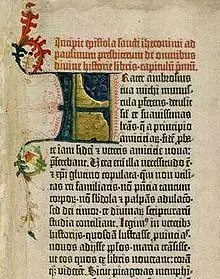 Incipit epistola sancti iheronimi ad
paulinum presbiterum de omnibus
divine historie libris. capitulū pmū.
Frater ambrosius
tua michi munus-
cula pferens. detulit
sil et suavissimas
lrās. q̄ a principio
amiciciaɽ. fidē pba-
te iam fidei et veteris amicicie nova
pferebant. Vera eni illa necessitudo ē.
et xpi glutino copulata. quā non utili-
tas rei familiaris. nō pñcia tantum
corpoɽ. nō subdola et palpās adulacō.
sed dei timor. et divinaɽ scripturarum
studia conciliant. Legim9 in veterib9
historijs. quosdā lustrasse provincias.
novos adijsse plos. maria trāsisse.
ut eos quos ex libris noverant: corā
q̄ȝ viderēt. Sicut pitagoras memphi-